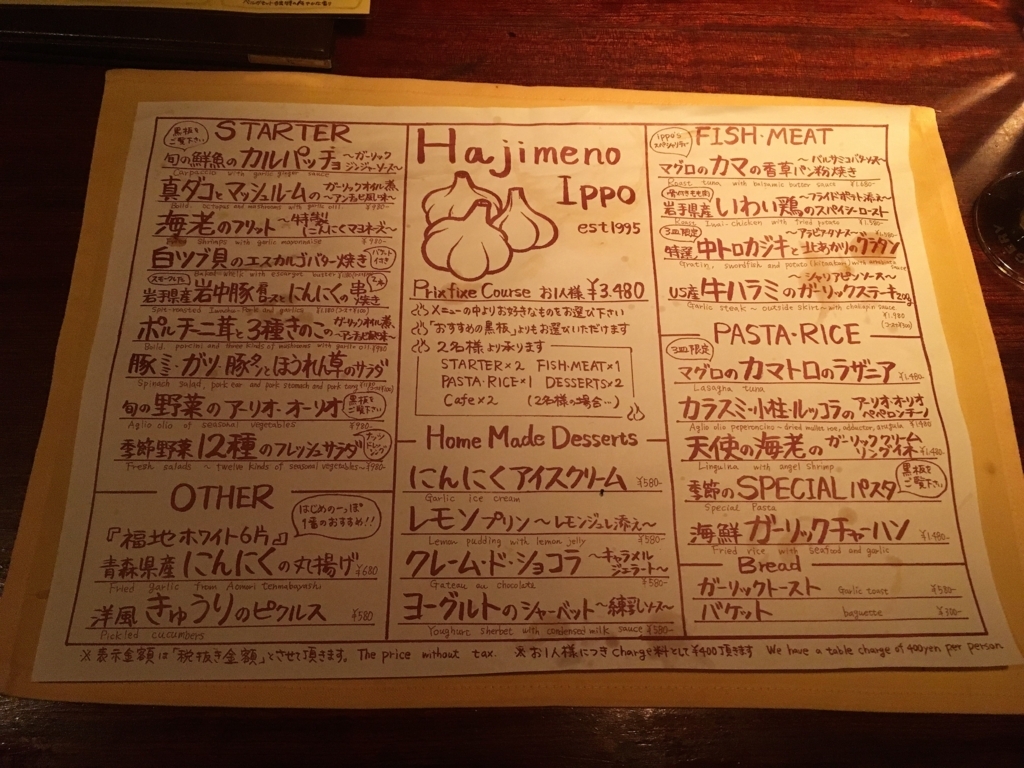 黒板をご覧下さい
STARTER
旬の鮮魚のカルパッチョ〜ガーリックジンジャーソース〜
Carpaccio with garlic ginger sauce
真ダコとマッシュルームのガーリックオイル煮〜アンチョビ風味〜
海老のフリット〜特製にんにくマヨネーズ〜
Shrimps with garlic mayonnaise ¥980-
白ツブ貝のエスカルゴバター焼き バケット付き
スモークした
岩手県産岩中豚肩ロースとにんにくの串焼き 2本
ポルチーニ茸と3種きのこのガーリックオイル煮〜アンチョビ風味〜
豚ミミ・ガツ・豚タンとほうれん草のサラダ
Spinach salad, pork ear and pork stomach and pork tang
旬の野菜のアーリオ・オーリオ 黒板をご覧下さい
Aglio olio of seasonal vegetables ¥980-
季節野菜12種のフレッシュサラダ ナッツドレッシング
Fresh salads 〜 twelve kinds of seasonal vegetables〜 ¥980-
OTHER
はじめのいっぽ1番のおすすめ!!
『福地ホワイト6片』
青森県産にんにくの丸揚げ ¥680
Fried garlic from Aomori
洋風きゅうりのピクルス ¥580
Pickled cucumbers
Hajimeno
Ippo
est 1995
Prix fixe Course お1人様 ¥3.480
メニューの中よりお好きなものをお選び下さい
"おすすめの黒板"よりもお選びいただけます
2名様より承ります
STARTER×2 FISH・MEAT×1
PASTA・RICE×1 DESSERTS×2
Cafe×2 (2名様の場合…)
Home Made Desserts
にんにくアイスクリーム ¥580-
Garlic ice cream
レモンプリン〜レモンジュレ添え〜
Lemon pudding with lemon jelly ¥580-
クレーム・ド・ショコラ〜キャラメルジェラート〜
Gateau au chocolate ¥580-
ヨーグルトのシャーベット〜練乳ソース〜
Youghurt sherbet with condensed milk sauce ¥580-
Ippo's スペシャリテ
FISH・MEAT
マグロのカマの香草パン粉焼き〜バルサミコバターソース〜
Roast tuna with balsamic butter sauce ¥1.680-
骨付きもも肉
岩手県産いわい鶏のスパイシーロースト〜フライドポテト添え〜
Roast Iwai-chicken with fried potato
3皿限定
特選中トロカジキと北あかりのグラタン〜アラビアータソース〜
US産牛ハラミのガーリックステーキ200g〜シャリアピンソース〜
Garlic steak 〜 outside skirt〜 with chaliapin sauce ¥1.980-
PASTA・RICE
3皿限定
マグロのカマトロのラザニア ¥1.480-
Lasagna tuna
カラスミ・小柱・ルッコラのアーリオ・オーリオペペロンチーノ
天使の海老のガーリッククリームリングイネ ¥1.480-
Linguina with angel shrimp
季節のSPECIALパスタ 黒板をご覧下さい
Special Pasta
海鮮ガーリックチャーハン ¥1.480-
Fried rice with seafood and garlic
Bread
ガーリックトースト Garlic toast ¥580-
バケット baguette ¥300-
※表示金額は「税抜き金額」とさせて頂きます。 The price without tax. ※お1人様につきcharge料として¥400頂きます We have a table charge of 400yen per person